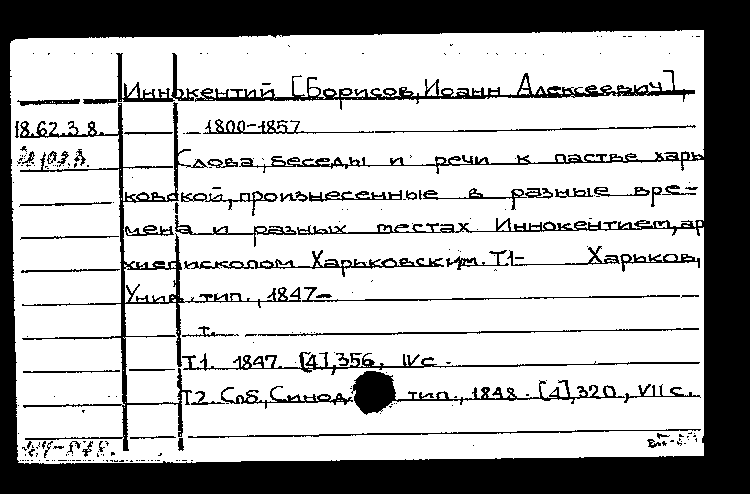 Иннокентий [Борисов, Иоанн Алексеевич],
18.62.3.8. 1800-1857
Слова, беседы и речи к пастве харь
ковской, произнесенные в разные вре-
мена и разных местах Иннокентием, ар
хиепископом Харьковским. Т1- Харьков,
Унив. тип., 1847-
т.
Т.1. 1847. [4], 356, IV с.
Т.2. Спб., Синод. тип., 1848. [4], 320, VII с.